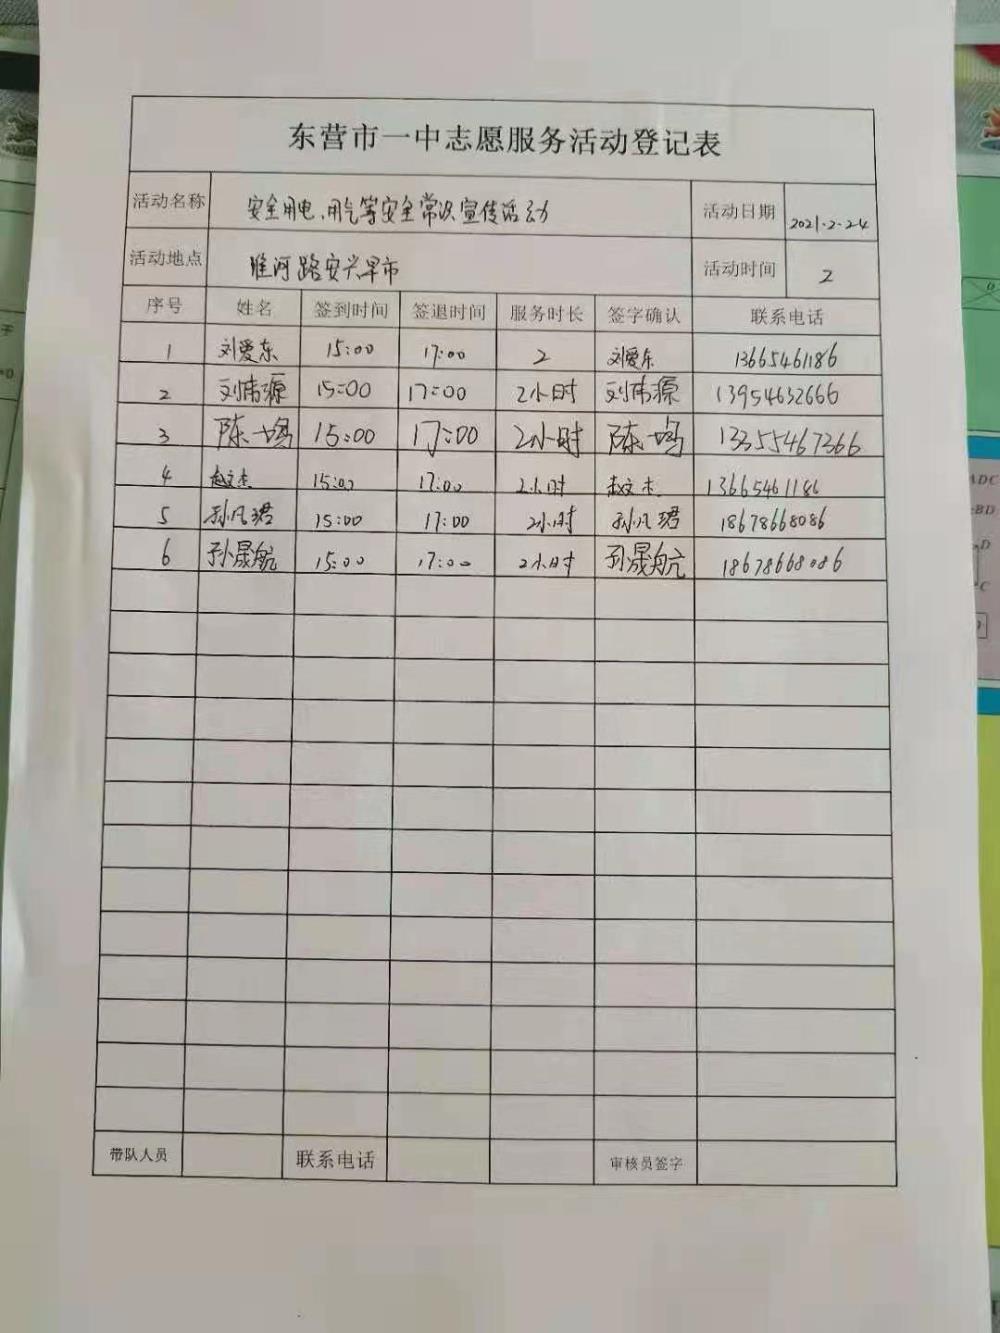 东营市一中志愿服务活动登记表
活动名称 安全用电、用气等安全常识宣传活动 活动日期 2021.2.24
活动地点 淮河路安兴早市 活动时间 2
序号 姓名 签到时间 签退时间 服务时长 签字确认 联系电话
1 刘爱东 15:00 17:00 2 刘爱东 13665461186
2 刘伟源 15:00 17:00 2小时 刘伟源 13954632666
3 陈一鸣 15:00 17:00 2小时 陈一鸣 13355467366
4 赵文杰 15:00 17:00 2小时 赵文杰 13665461186
5 孙凡珺 15:00 17:00 2小时 孙凡珺 18678668086
6 孙晟航 15:00 17:00 2小时 孙晟航 18678668086
带队人员 联系电话 审核员签字